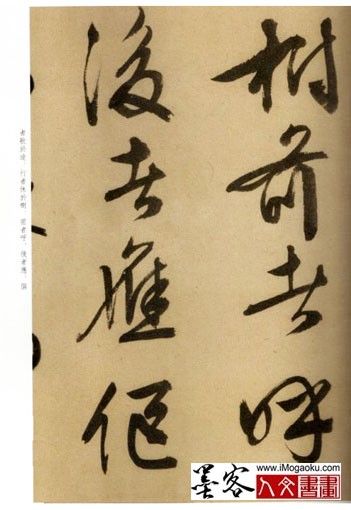 樹前者呼
後者應傴
者歌於途，行者休於樹，前者呼，後者應，傴
墨客
www.iMogaoku.com
人文書畫